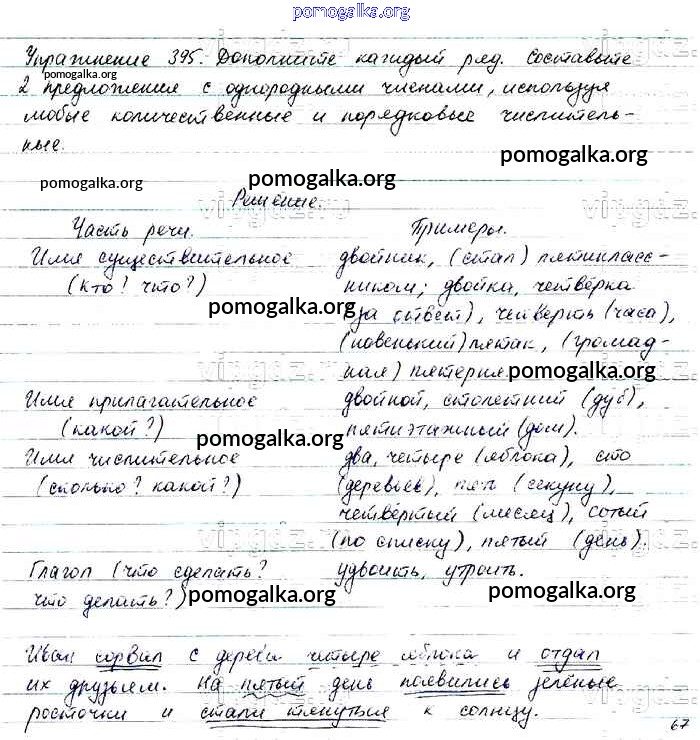 pomogalka.org
Упражнение 395. Дополните каждый ряд. Составьте
pomogalka.org
2 предложения с однородными членами, используя
любые количественные и порядковые числитель-
ные.
pomogalka.org
pomogalka.org
pomogalka.org
Решение.
Часть речи. Примеры.
Имя существительное двойник, (стал) пятикласс-
(кто? что?) ником; двойка, четвёрка
pomogalka.org
(за ответ), четверть (часа),
(новенький) пятак, (громад-
ная) пятерня
pomogalka.org
Имя прилагательное двойной, столетний (дуб),
(какой?) пятиэтажный (дом).
pomogalka.org
Имя числительное два, четыре (яблока), сто
(сколько? какой?) (деревьев), пять (секунд),
четвёртый (месяц), сотый
(по списку), пятый (день).
Глагол (что сделать? удвоить, утроить.
что делать?)
pomogalka.org
pomogalka.org
Иван сорвал с дерева четыре яблока и отдал
их друзьям. На пятый день появились зелёные
росточки и стали тянуться к солнцу.
67